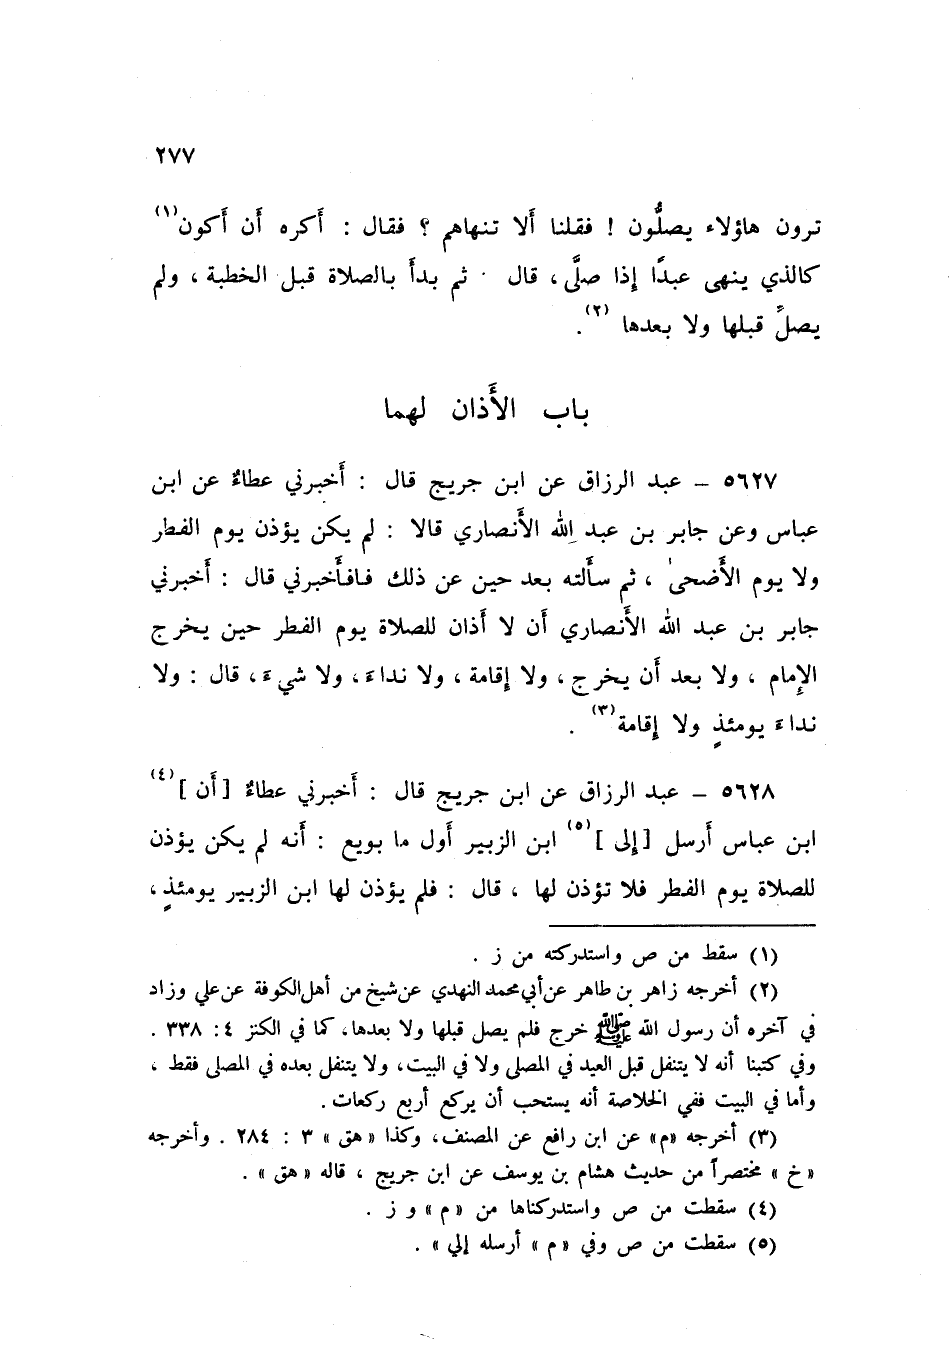 ٢٧٧
ترون هاؤلاء يصلُّون ! فقلنا أَلا تنهاهم ؟ فقال : أَكره أَن أَكون(١)
كالذي ينهى عبدًا إذا صلَّى، قال ٠ ثم بدأَ بالصلاة قبل الخطبة ، ولم
يصلِّ قبلها ولا بعدها (٢).
باب الأَذان لهما
٥٦٢٧ – عبد الرزاق عن ابن جريج قال : أَخبرني عطاءٌ عن ابن
عباس وعن جابر بن عبد الله الأَنصاري قالا : لم يكن يؤذن يوم الفطر
ولا يوم الأَضحىٰ ، ثم سأَلته بعد حين عن ذلك فافـأَخبرني قال : أَخبرني
جابر بن عبد الله الأَنصاري أن لا أَذان للصلاة يوم الفطر حين يخرج
الإِمام ، ولا بعد أَن يخرج ، ولا إقامة ، ولا نداءَ، ولا شيءَ، قال : ولا
نداءَ يومئذٍ ولا إقامة(٣) .
٥٦٢٨ – عبد الرزاق عن ابن جريج قال : أَخبرني عطاءٌ [أَن ](٤)
ابن عباس أَرسل [إلى ](٥) ابن الزبير أَول ما بويع : أَنه لم يكن يؤذن
للصلاة يوم الفطر فلا تؤذن لها ، قال : فلم يؤذن لها ابن الزبير يومئذٍ ،
(١) سقط من ص واستدركته من ز .
(٢) أخرجه زاهر بن طاهر عن أبي محمد النهدي عن شيخ من أهل الكوفة عن علي وزاد
في آخره أن رسول الله ﷺ خرج فلم يصل قبلها ولا بعدها، كما في الكنز ٤: ٣٣٨ .
وفي كتبنا أنه لا يتنفل قبل العيد في المصلى ولا في البيت، ولا يتنفل بعده في المصلى فقط ،
وأما في البيت ففي الخلاصة أنه يستحب أن يركع أربع ركعات .
(٣) أخرجه «م» عن ابن رافع عن المصنف، وكذا «هق» ٣ : ٢٨٤ . وأخرجه
«خ» مختصراً من حديث هشام بن يوسف عن ابن جريج ، قاله «هق» .
(٤) سقطت من ص واستدركناها من «م» و ز .
(٥) سقطت من ص وفي «م» أرسله إلي» .